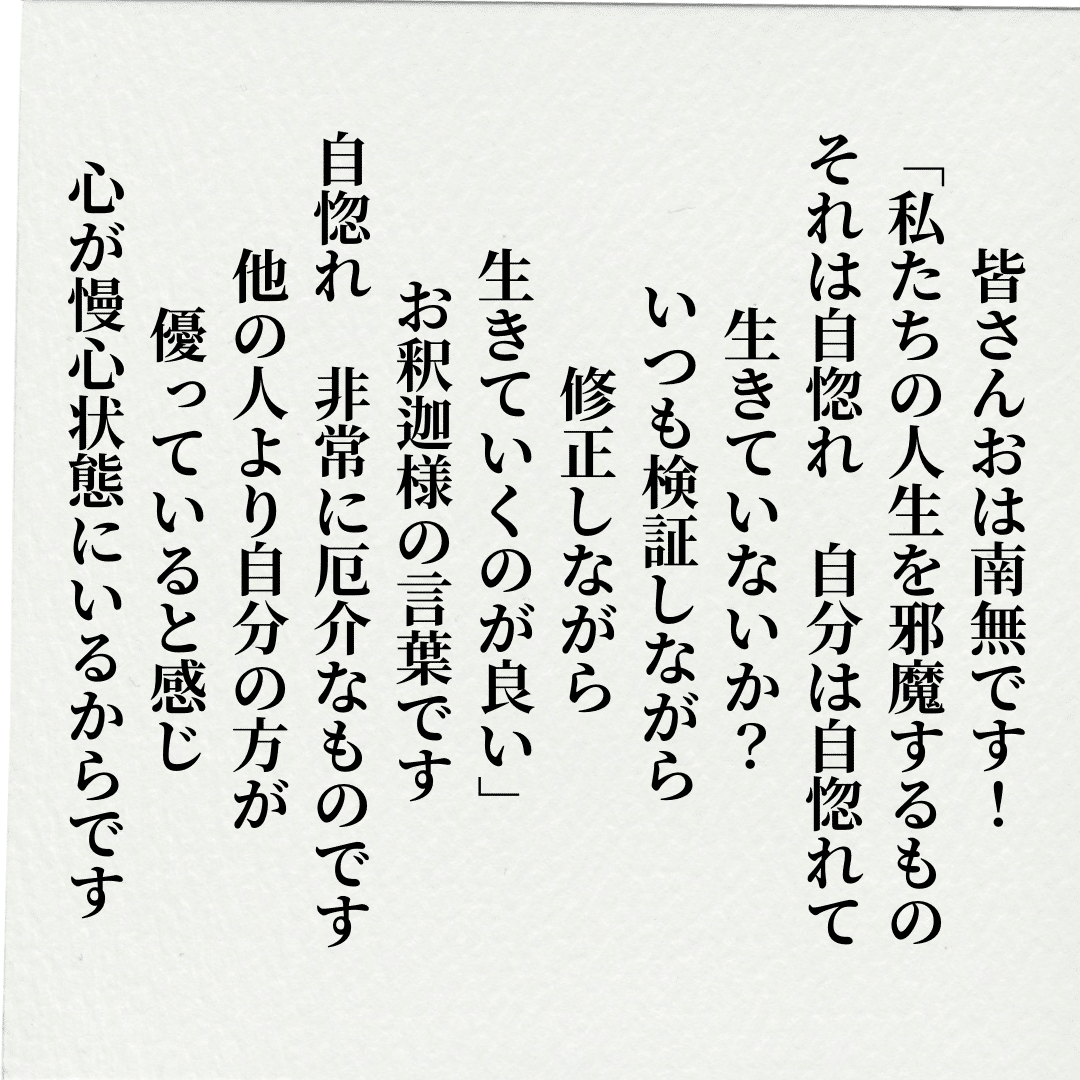 皆さんおは南無です！
「私たちの人生を邪魔するもの
それは自惚れ　自分は自惚れて
生きていないか？
いつも検証しながら
修正しながら
生きていくのが良い」
お釈迦様の言葉です
自惚れ　非常に厄介なものです
他の人より自分の方が
優っていると感じ
心が慢心状態にいるからです